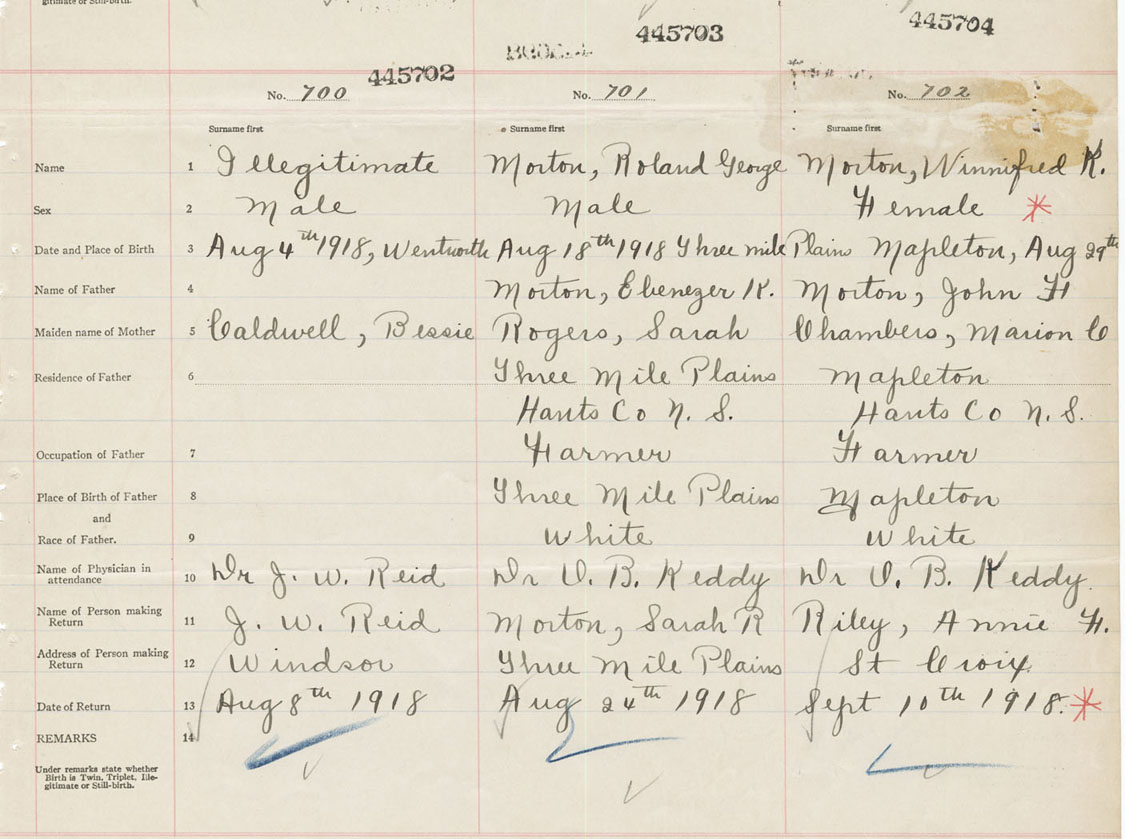 gitimate or Still-birth.
445702
445703
445704
No. 700
No. 701
No. 702
Surname first
Surname first
Surname first
Name 1 Illegitimate Morton, Roland George Morton, Winnifred K.
Sex 2 Male Male Female *
Date and Place of Birth 3 Aug 4th 1918, Wentworth Aug 18th 1918 Three mile Plains Mapleton, Aug 29th
Name of Father 4 Morton, Ebenezer K. Morton, John F
Maiden name of Mother 5 Caldwell, Bessie Rogers, Sarah Chambers, Marion C
Residence of Father 6 Three Mile Plains Mapleton
Hants Co N. S. Hants Co N. S.
Occupation of Father 7 Farmer Farmer
Place of Birth of Father 8 Three Mile Plains Mapleton
and
Race of Father. 9 White White
Name of Physician in
attendance 10 Dr J. W. Reid Dr O. B. Keddy Dr O. B. Keddy
Name of Person making
Return 11 J. W. Reid Morton, Sarah R Riley, Annie F.
Address of Person making
Return 12 Windsor Three Mile Plains St Croix
Date of Return 13 Aug 8th 1918 Aug 24th 1918 Sept 10th 1918. *
REMARKS 14
Under remarks state whether
Birth is Twin, Triplet, Ille-
gitimate or Still-birth.